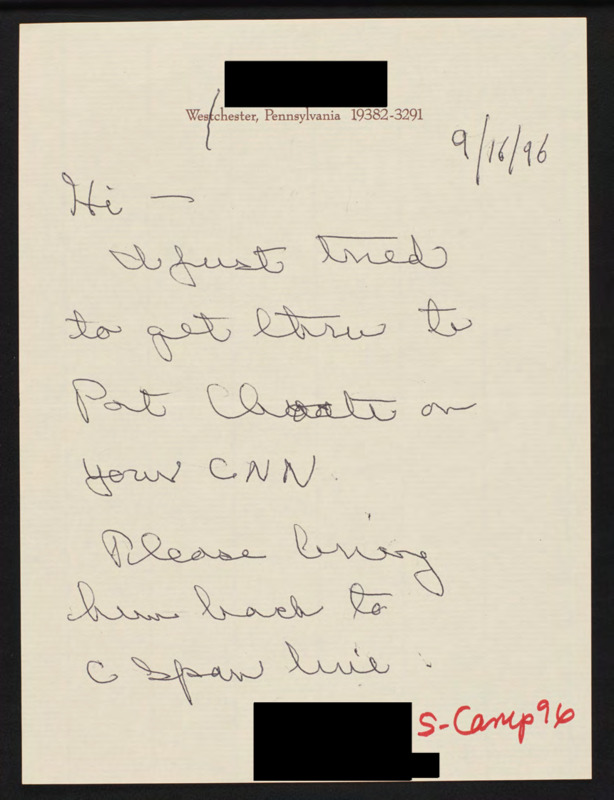 Westchester, Pennsylvania 19382-3291
9/16/96
Hi —
I just tried
to get thru to
Pat Choate on
your CNN.
Please bring
him back to
C Span live.
S-Camp96